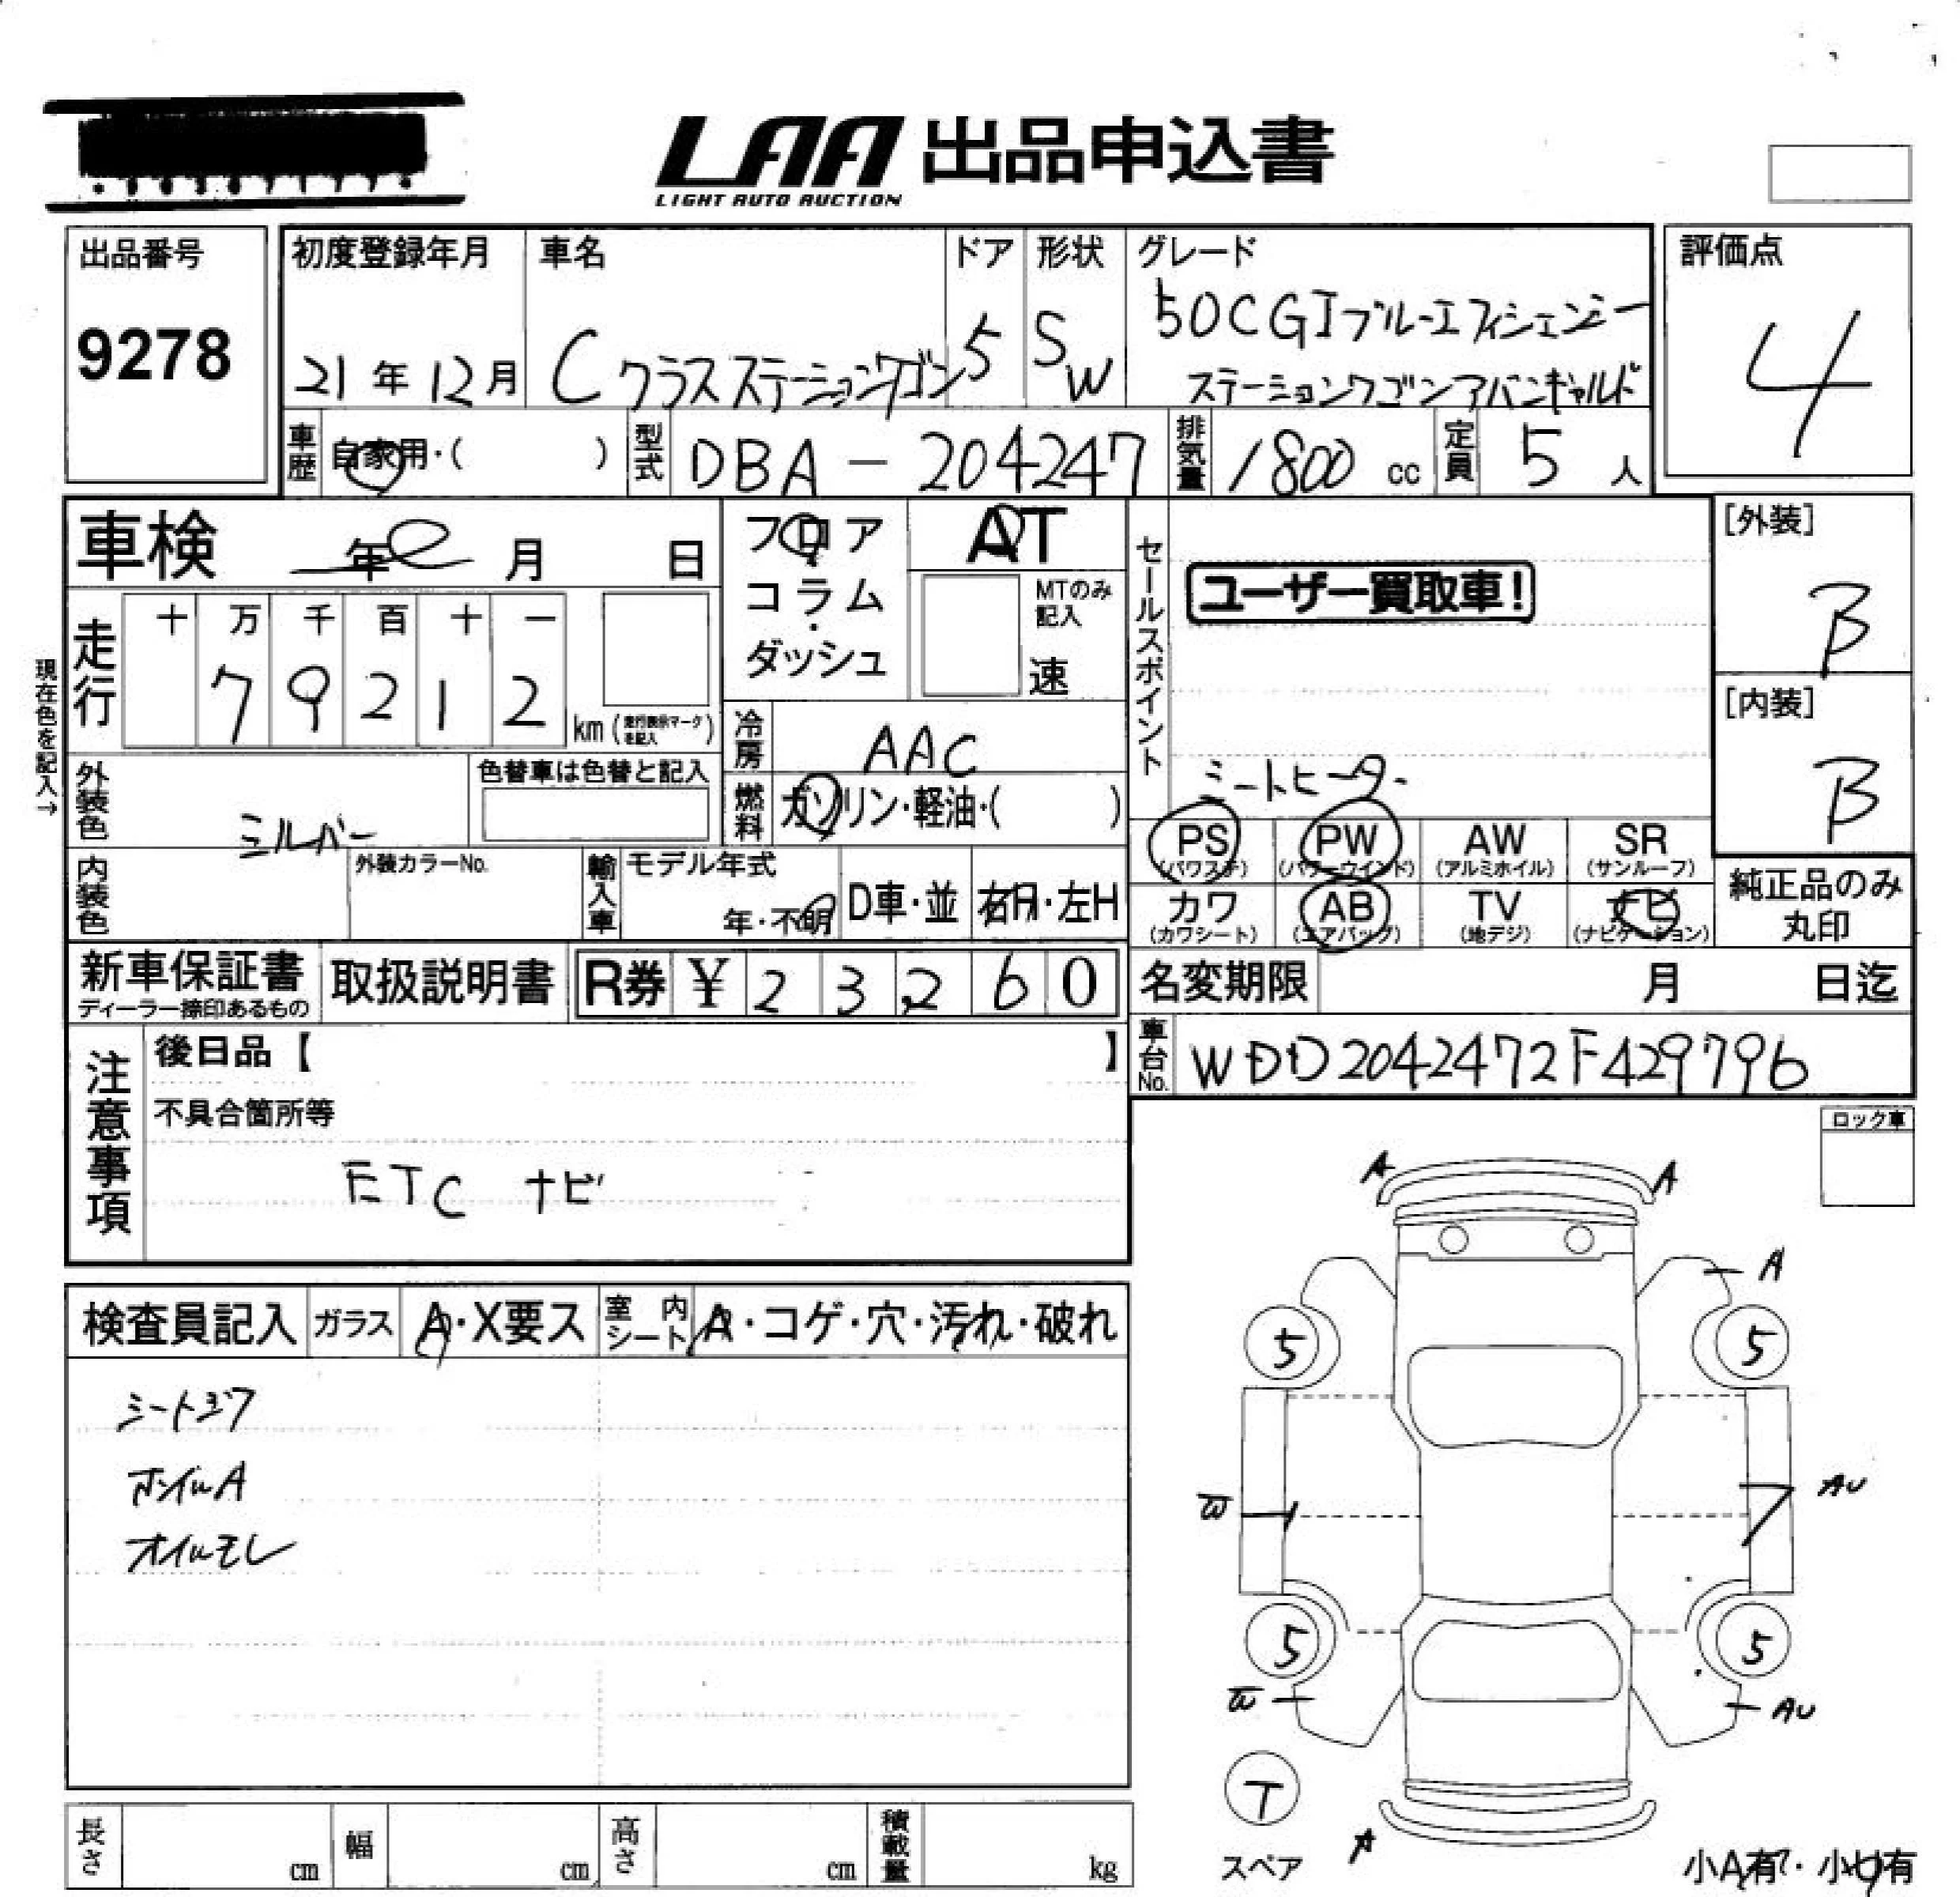 LAA 出品申込書
LIGHT AUTO AUCTION
出品番号
9278
初度登録年月
21年12月
車名
Cクラスステーションワゴン
ドア
5
形状
SW
グレード
50CGIブルーエフィシェンシー
ステーションワゴンアバンギャルド
評価点
4
車歴 自家用・( )
型式 DBA-204247
排気量 1800 cc
定員 5 人
車検 年 月 日
フロア・コラム・ダッシュ
AT
MTのみ記入
速
セールスポイント
ユーザー買取車!
シートヒーター
[外装]
B
[内装]
B
現在色を記入→
走行 十 万 千 百 十 一
79212 km (走行表示マークを記入)
冷房 AAC
燃料 ガソリン・軽油・( )
外装色 シルバー
色替車は色替と記入
内装色
外装カラーNo.
輸入車 モデル年式
年・不明
D車・並
右H・左H
PS (パワステ)
PW (パワーウインド)
AW (アルミホイル)
SR (サンルーフ)
カワ (カワシート)
AB (エアバッグ)
TV (地デジ)
ナビ (ナビゲーション)
純正品のみ丸印
新車保証書
ディーラー捺印あるもの
取扱説明書
R券 ¥ 23,260
名変期限 月 日迄
車台No. WDD2042472F429796
注意事項
後日品【 】
不具合箇所等
ETC ナビ
ロック車
検査員記入
ガラス A・X要ス
室内シート A・コゲ・穴・汚れ・破れ
ホイルA
オイルモレ
A A
A
5 5
W AU
5 5
W AU
T
スペア
A
小A有・小U有
長さ cm
幅 cm
高さ cm
積載量 kg